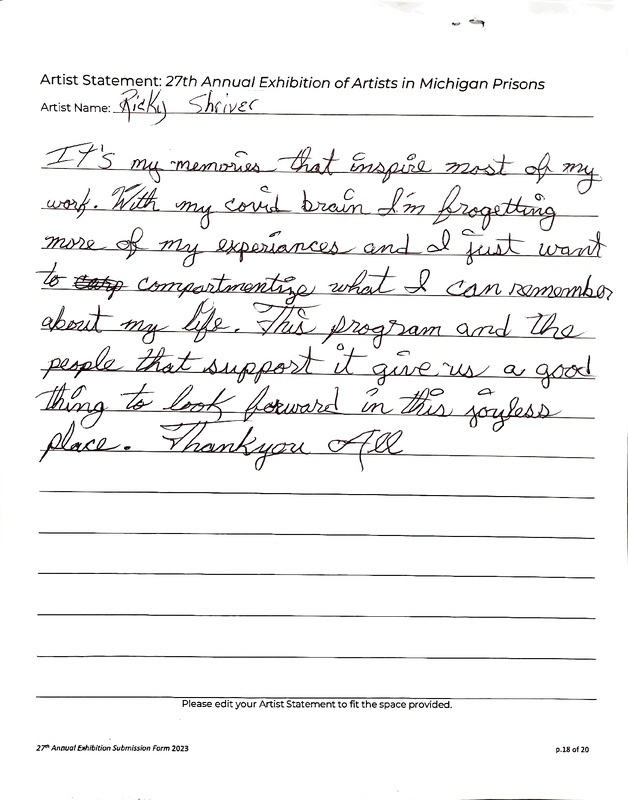 Artist Statement: 27th Annual Exhibition of Artists in Michigan Prisons
Artist Name: Ricky Shriver
It's my memories that inspire most of my
work. With my covid brain I'm frogetting
more of my experiances and I just want
to compartmentize what I can remember
about my life. This program and the
people that support it give us a good
thing to look forward in this joyless
place. Thankyou All
Please edit your Artist Statement to fit the space provided.
27th Annual Exhibition Submission Form 2023
p.18 of 20